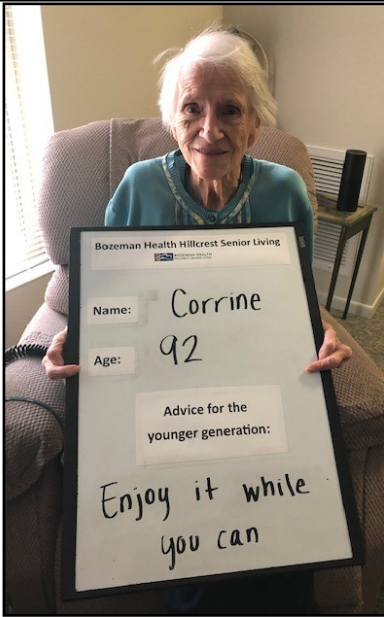 Bozeman Health Hillcrest Senior Living
BOZEMAN HEALTH
Name: Corrine
Age: 92
Advice for the
younger generation:
Enjoy it while
you can